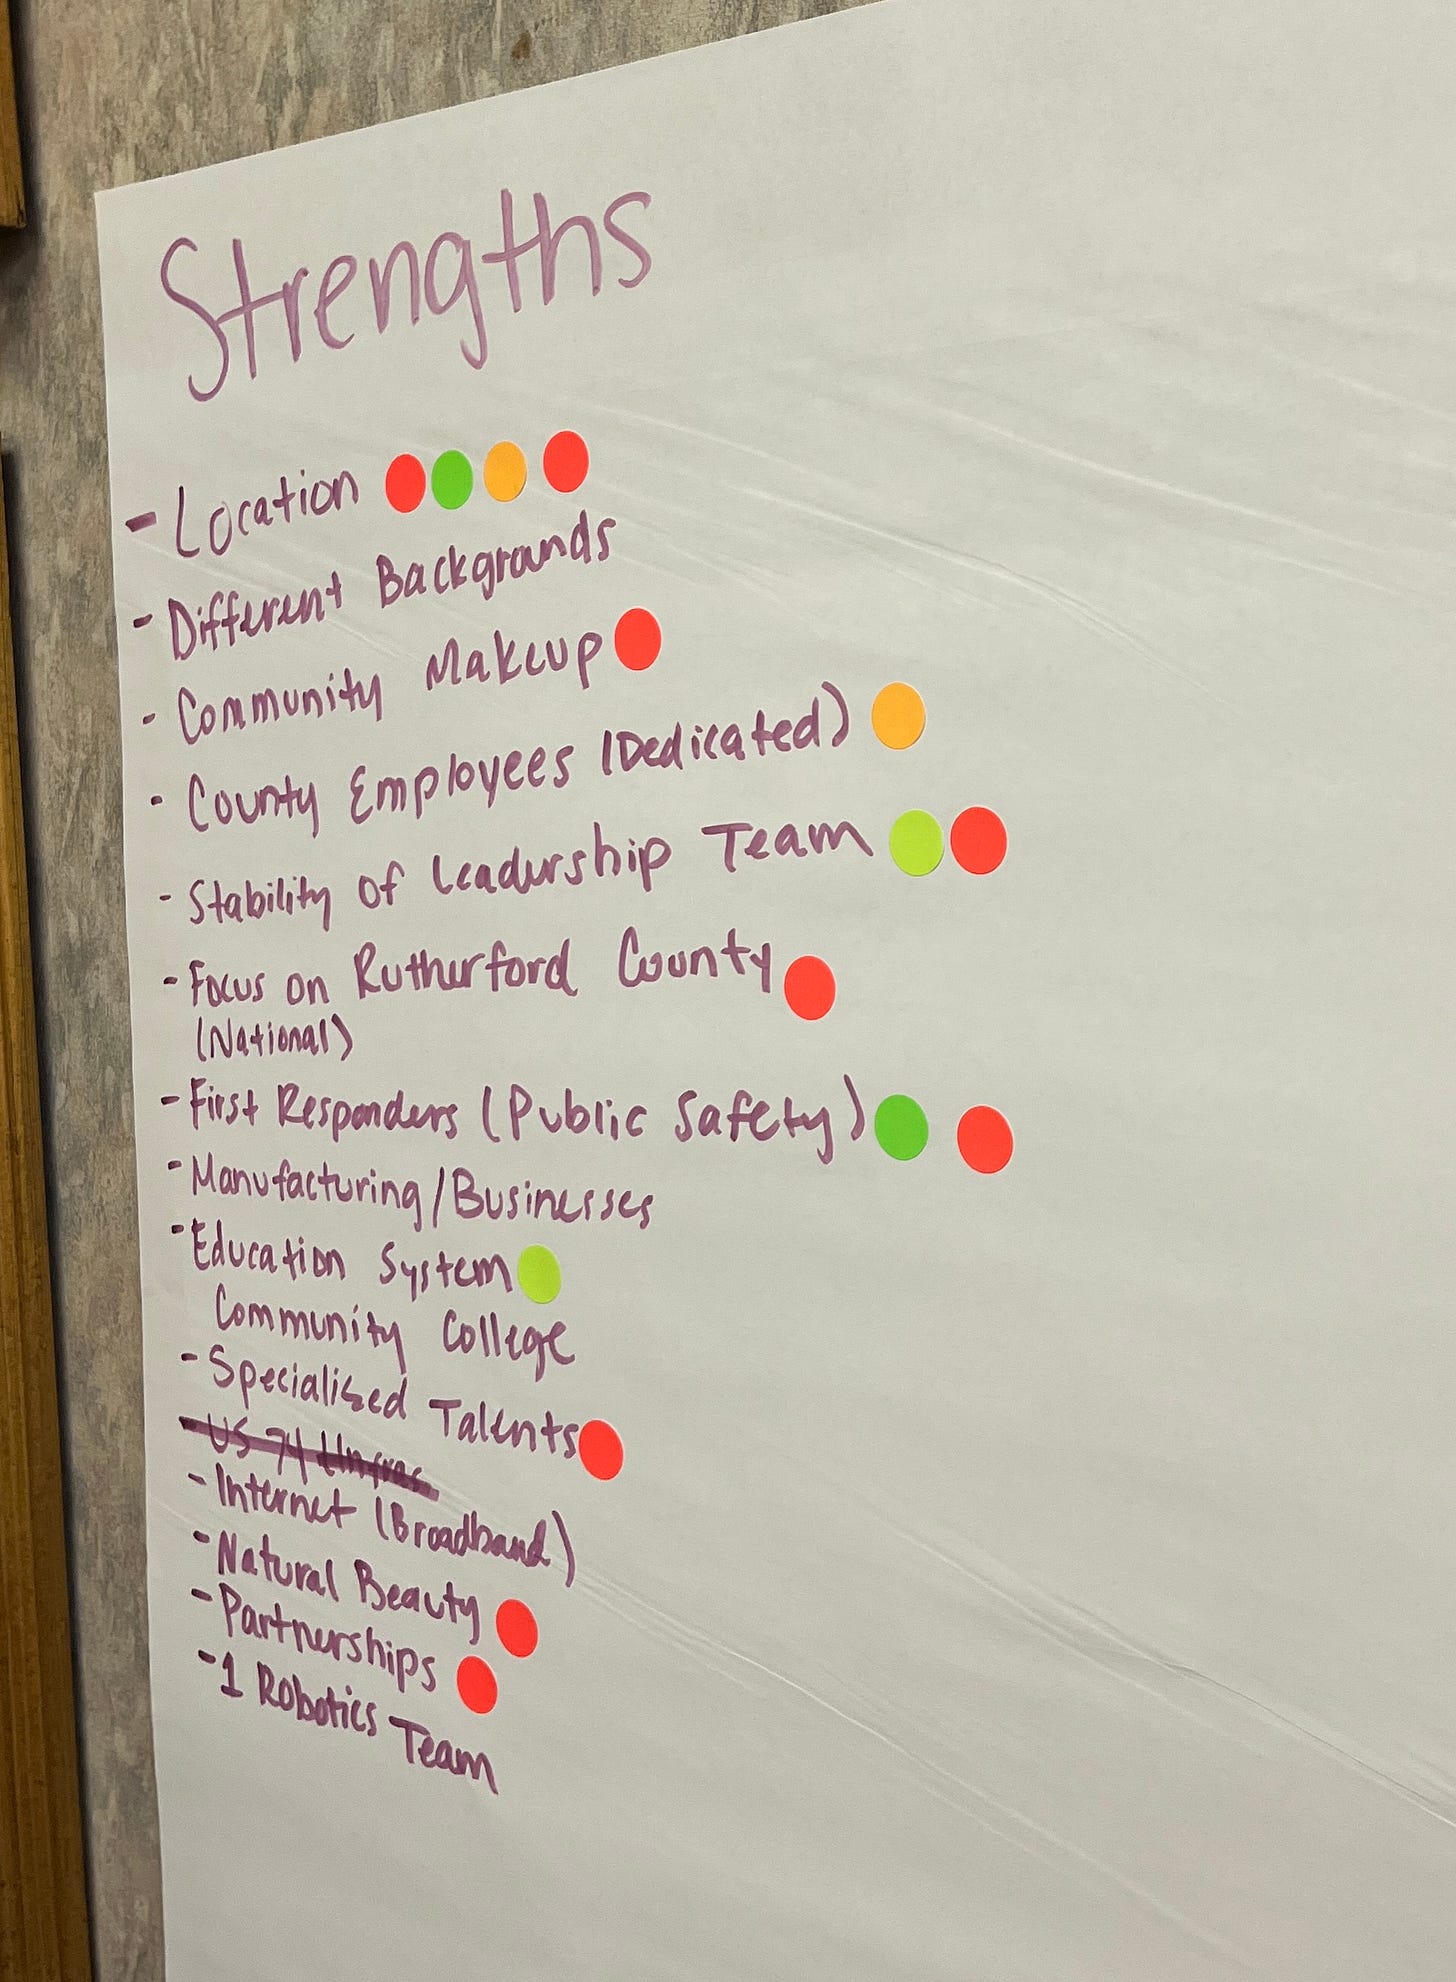 Strengths
- Location
- Different Backgrounds
- Community Makeup
- County Employees (Dedicated)
- Stability of Leadership Team
- Focus on Rutherford County
(National)
- First Responders (Public Safety)
- Manufacturing/Businesses
- Education System
Community College
- Specialized Talents
US 74
- Internet (Broadband)
- Natural Beauty
- Partnerships
- 1 Robotics Team